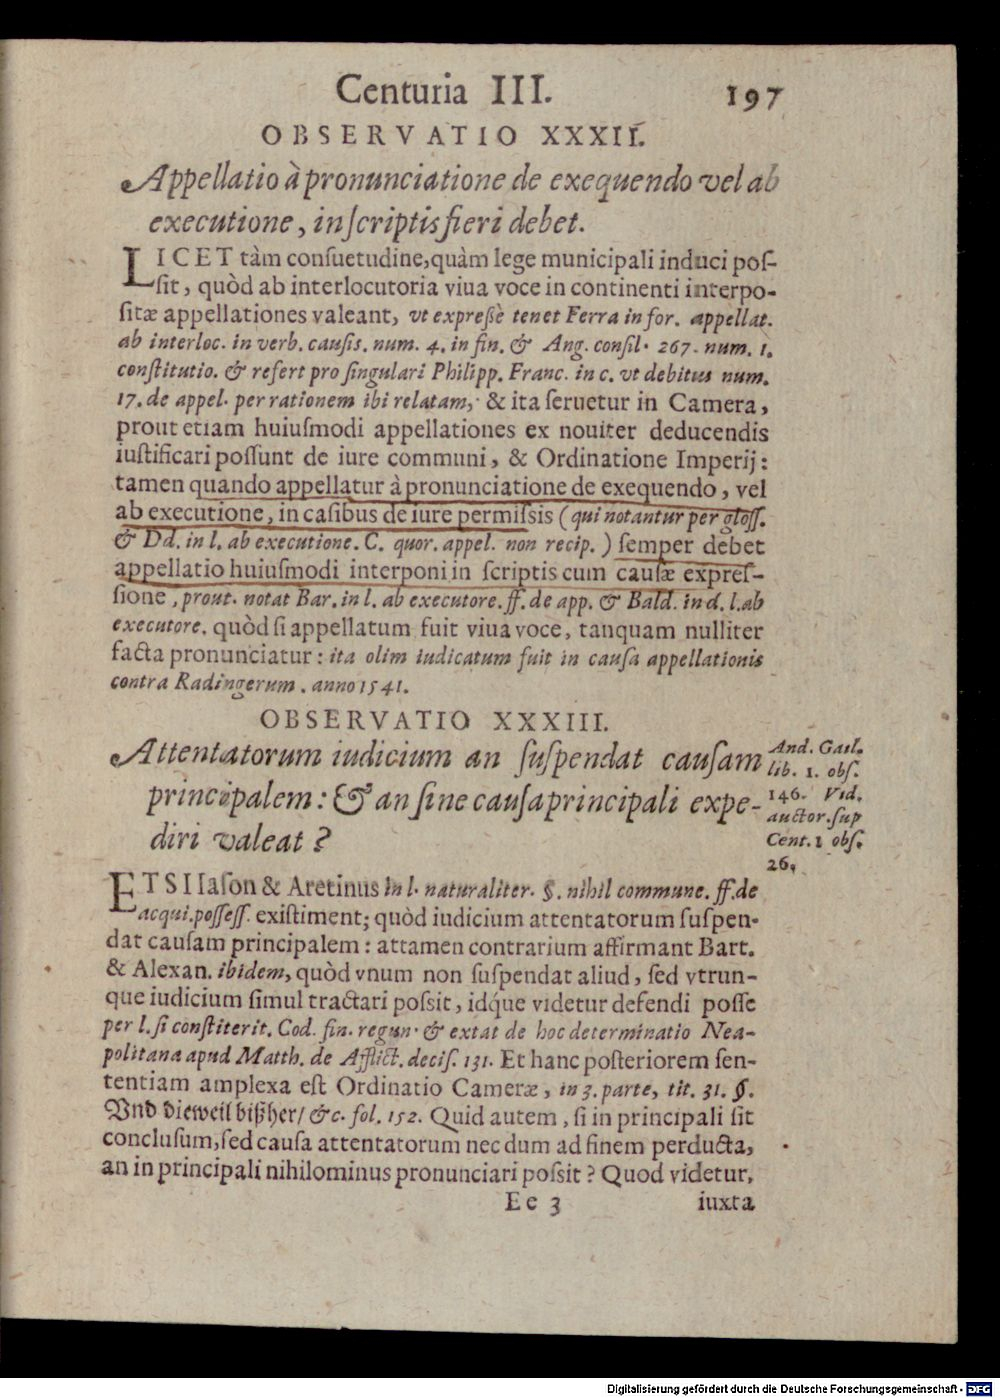 Centuria III. 197
OBSERVATIO XXXII.
Appellatio à pronunciatione de exequendo vel ab
executione, in ſcriptis fieri debet.
LICET tàm conſuetudine, quàm lege municipali induci poſ-
ſit, quòd ab interlocutoria viua voce in continenti interpo-
ſitæ appellationes valeant, vt expreßè tenet Ferra in for. appellat.
ab interloc. in verb. cauſis. num. 4. in fin. & Ang. conſil. 267. num. 1.
conſtitutio. & refert pro ſingulari Philipp. Franc. in c. vt debitus num.
17. de appel. per rationem ibi relatam, & ita ſeruetur in Camera,
prout etiam huiuſmodi appellationes ex nouiter deducendis
iuſtificari poſſunt de iure communi, & Ordinatione Imperij:
tamen quando appellatur à pronunciatione de exequendo, vel
ab executione, in caſibus de iure permiſsis (qui notantur per gloſſ.
& Dd. in l. ab executione. C. quor. appel. non recip.) ſemper debet
appellatio huiuſmodi interponi in ſcriptis cum cauſæ expreſ-
ſione, prout. notat Bar. in l. ab executore. ff. de app. & Bald. in d. l. ab
executore. quòd ſi appellatum fuit viua voce, tanquam nulliter
facta pronunciatur: ita olim iudicatum fuit in cauſa appellationis
contra Radingerum. anno 1541.
OBSERVATIO XXXIII.
Attentatorum iudicium an ſuſpendat cauſam
principalem: & an ſine cauſa principali expe-
diri valeat?
And. Gail.
lib. 1. obſ.
146. Vid.
auctor. ſup
Cent. 1 obſ.
26.
ETSI Iaſon & Aretinus in l. naturaliter. §. nihil commune. ff. de
acqui. poſſeſſ. exiſtiment; quòd iudicium attentatorum ſuſpen-
dat cauſam principalem: attamen contrarium affirmant Bart.
& Alexan. ibidem, quòd vnum non ſuſpendat aliud, ſed vtrun-
que iudicium ſimul tractari poſsit, idq́ue videtur defendi poſſe
per l. ſi conſtiterit. Cod. fin. regun. & extat de hoc determinatio Nea-
politana apud Matth. de Afflict. deciſ. 131. Et hanc poſteriorem ſen-
tentiam amplexa eſt Ordinatio Cameræ, in 3. parte, tit. 31. §.
Vnd dieweil bißher/ &c. fol. 152. Quid autem, ſi in principali ſit
concluſum, ſed cauſa attentatorum nec dum ad finem perducta,
an in principali nihilominus pronunciari poſsit? Quod videtur,
Ee 3 iuxta
Digitalisierung gefördert durch die Deutsche Forschungsgemeinschaft - DFG